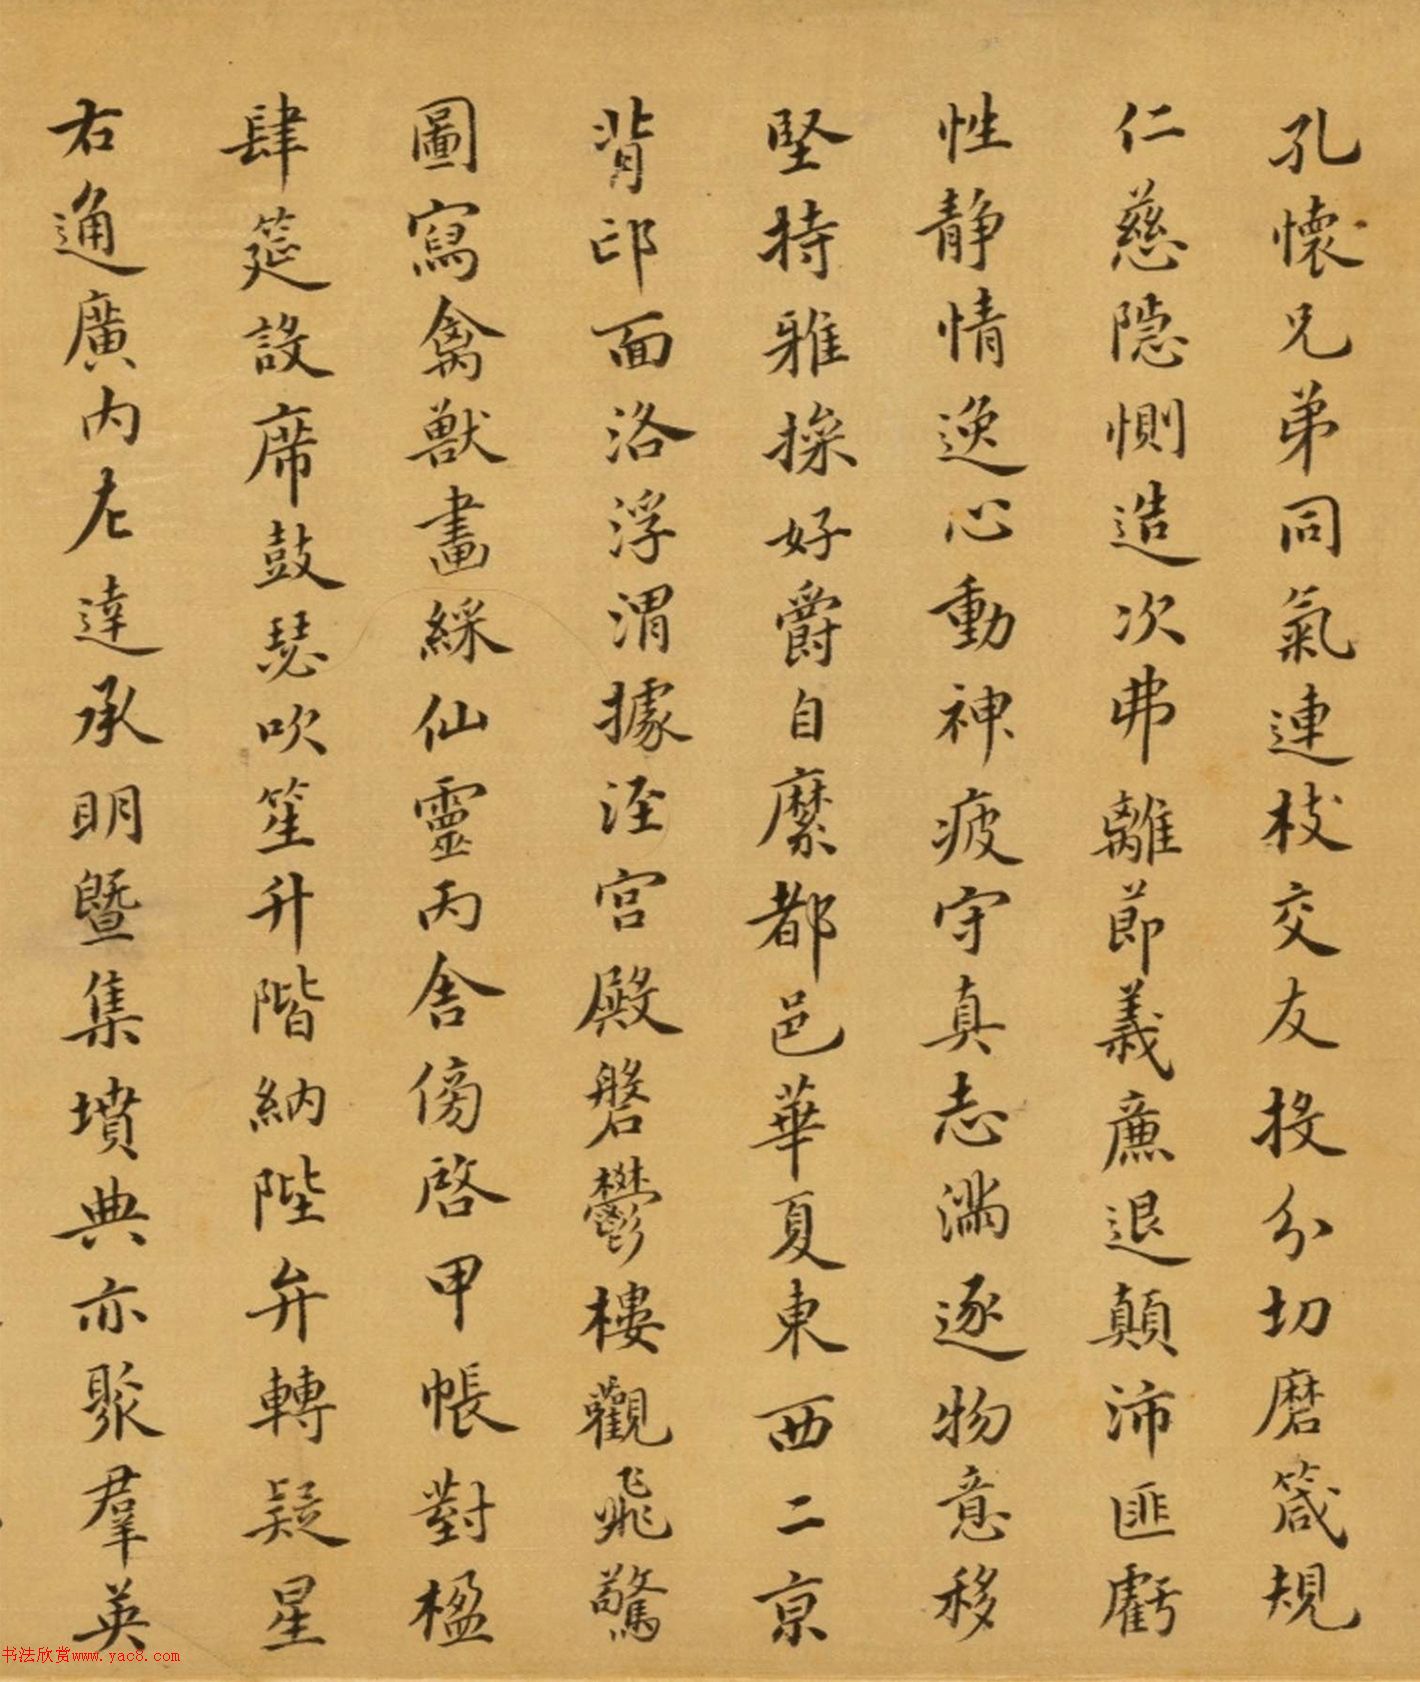 孔懷兄弟同氣連枝交友投分切磨箴規
仁慈隱惻造次弗離節義廉退顛沛匪虧
性靜情逸心動神疲守真志滿逐物意移
堅持雅操好爵自縻都邑華夏東西二京
背邙面洛浮渭據涇宮殿磐鬱樓觀飛驚
圖寫禽獸畫綵仙靈丙舍傍啓甲帳對楹
肆筵設席鼓瑟吹笙升階納陛弁轉疑星
右通廣內左達承明既集墳典亦聚羣英
书法欣赏www.yac8.com